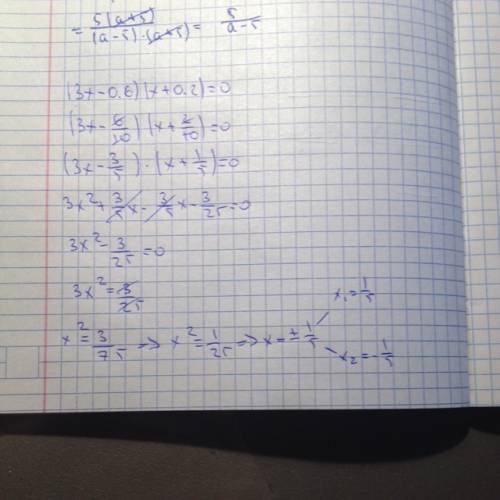 = 5(a+5)/(a-5)·(a+5) = 5/a-5
(3x-0.6)(x+0.2)=0
(3x-6/10)(x+2/10)=0
(3x-3/5)·(x+1/5)=0
3x²+3/5x-3/5x-3/25=0
3x²-3/25=0
3x²=3/25
x²=3/75 => x²=1/25 => x=±1/5
x₁=1/5
x₂=-1/5